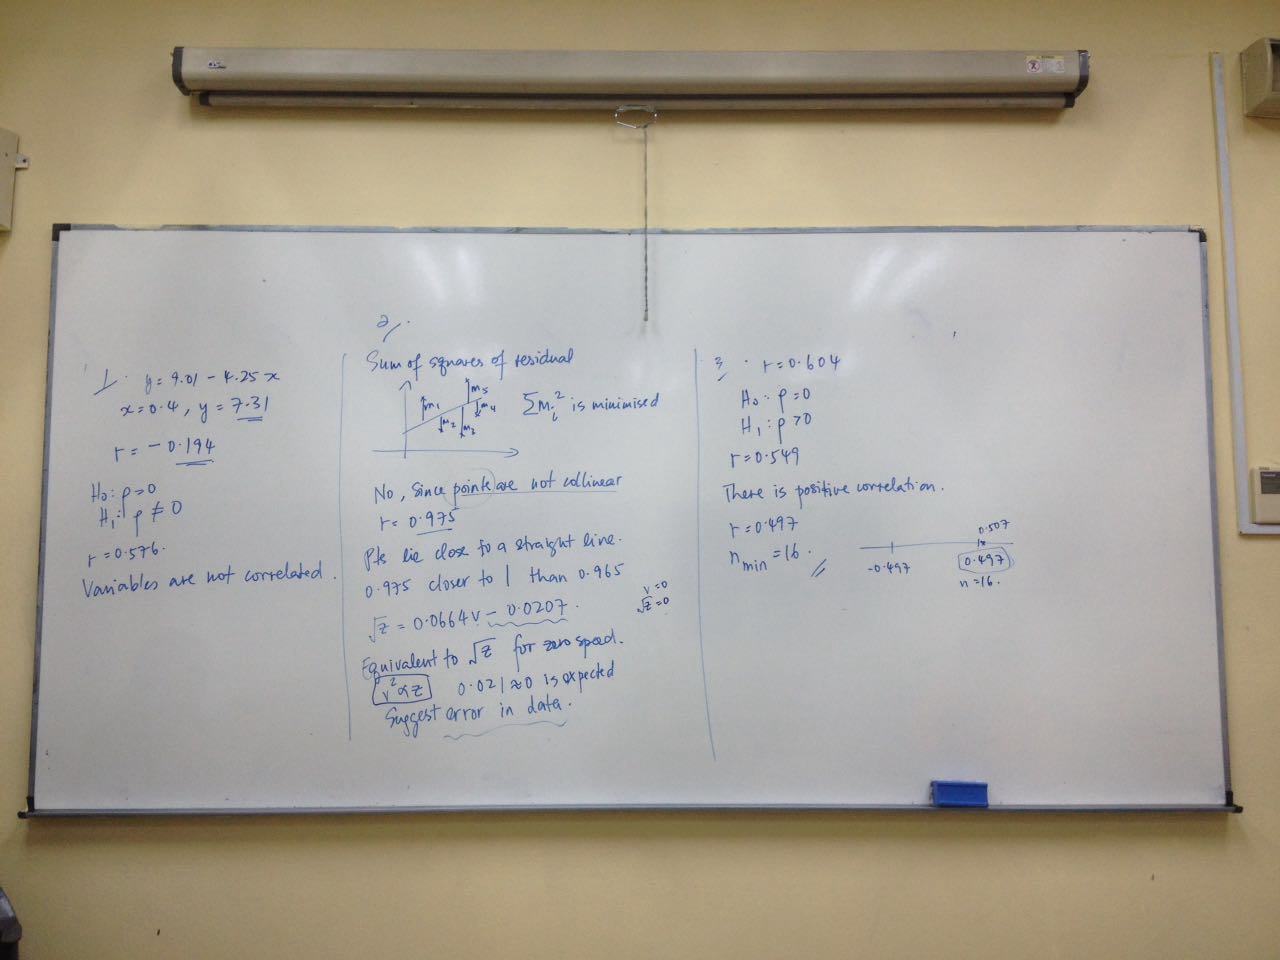 1.
y = 9.01 - 4.25 x
x = 0.4, y = 7.31
r = -0.194
H₀: ρ=0
H₁: ρ ≠ 0
r = 0.576.
Variables are not correlated.
2.
Sum of squares of residual
m₁ m₂ m₃ m₄ m₅
∑mᵢ² is minimised
No, since points are not collinear
r = 0.975
Pts lie close to a straight line.
0.975 closer to 1 than 0.965
√z = 0.0664v - 0.0207.
v=0
√z=0
Equivalent to √z for zero speed.
v² ∝ z 0.021≈0 is expected
Suggest error in data.
3.
r = 0.604
H₀: ρ = 0
H₁: ρ > 0
r = 0.549
There is positive correlation.
r = 0.497
n min = 16.
0.507
-0.497 0.497
n = 16.